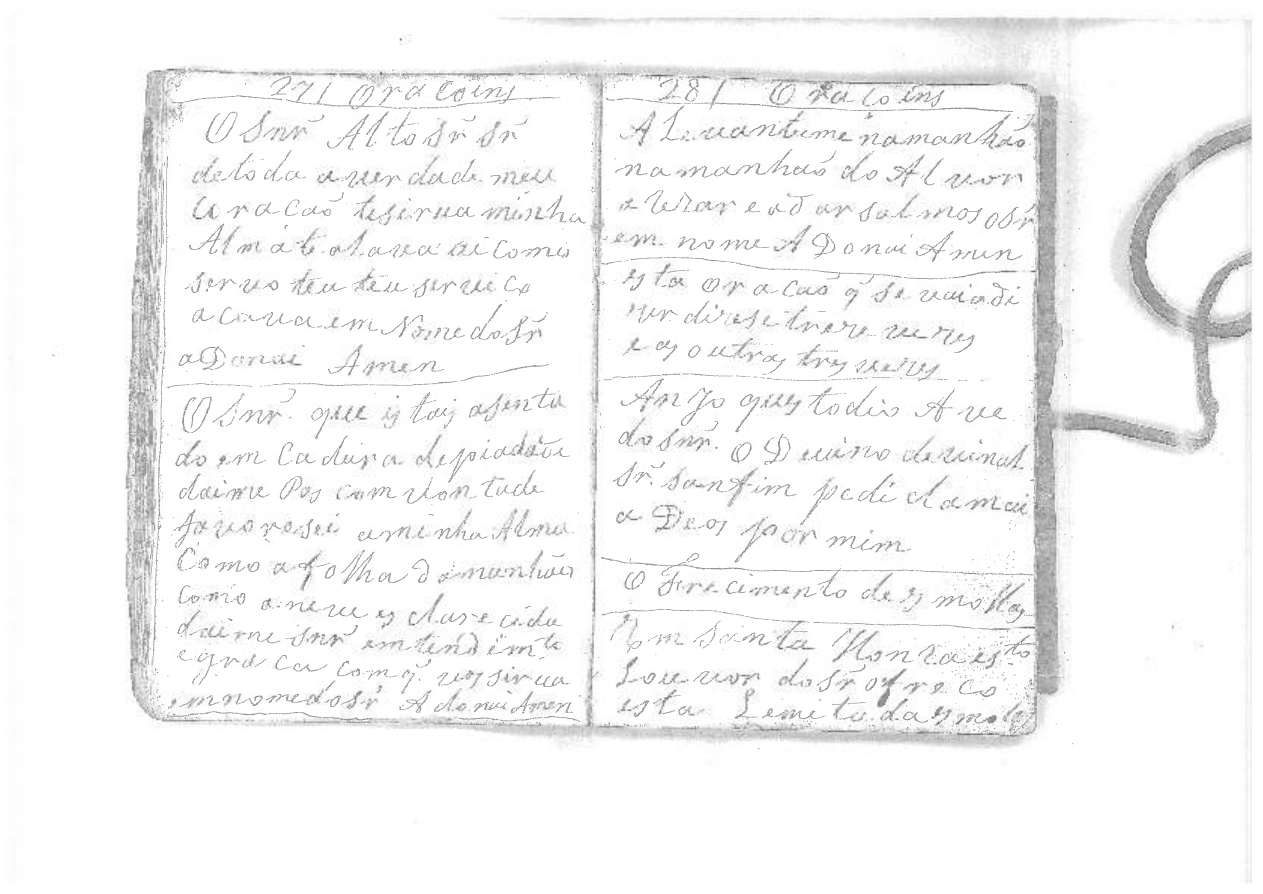 271 Oracoins
O Snr̃ Alto Sr̃ Sr̃
de toda averdade meu
Coracaõ tesirua minha
Alma te alava ai como
seruo teu teu seruico
acaua em Nome do Sr̃
aDonai Amen
O Snr̃. que istais asenta
do em Cadura de piadade
daime Pos com vontade
favoresei aminha Alma
Como a folha da manhão
como aneve esclarecida
daime snr̃ emtendim.to
egraca com q̃ vos sirua
em nome do Sr̃ Adonai Amen
281 Oracoins
A Levanteime na manhão
na manhaõ do Alvor
a
em nome ADonai Amen
esta oracaõ q̃ se vai adi
zer direse treze vezes
e as outras tres vezes
Anjo questodio Ave
do snr̃. O Deuino deuinal
sr̃. sanfim pedi clamai
a Deos por mim
O Frecimento desmollas
Em Santa Honra es.to
Louvor do Sr̃ ofreco
esta Lemita da esmola